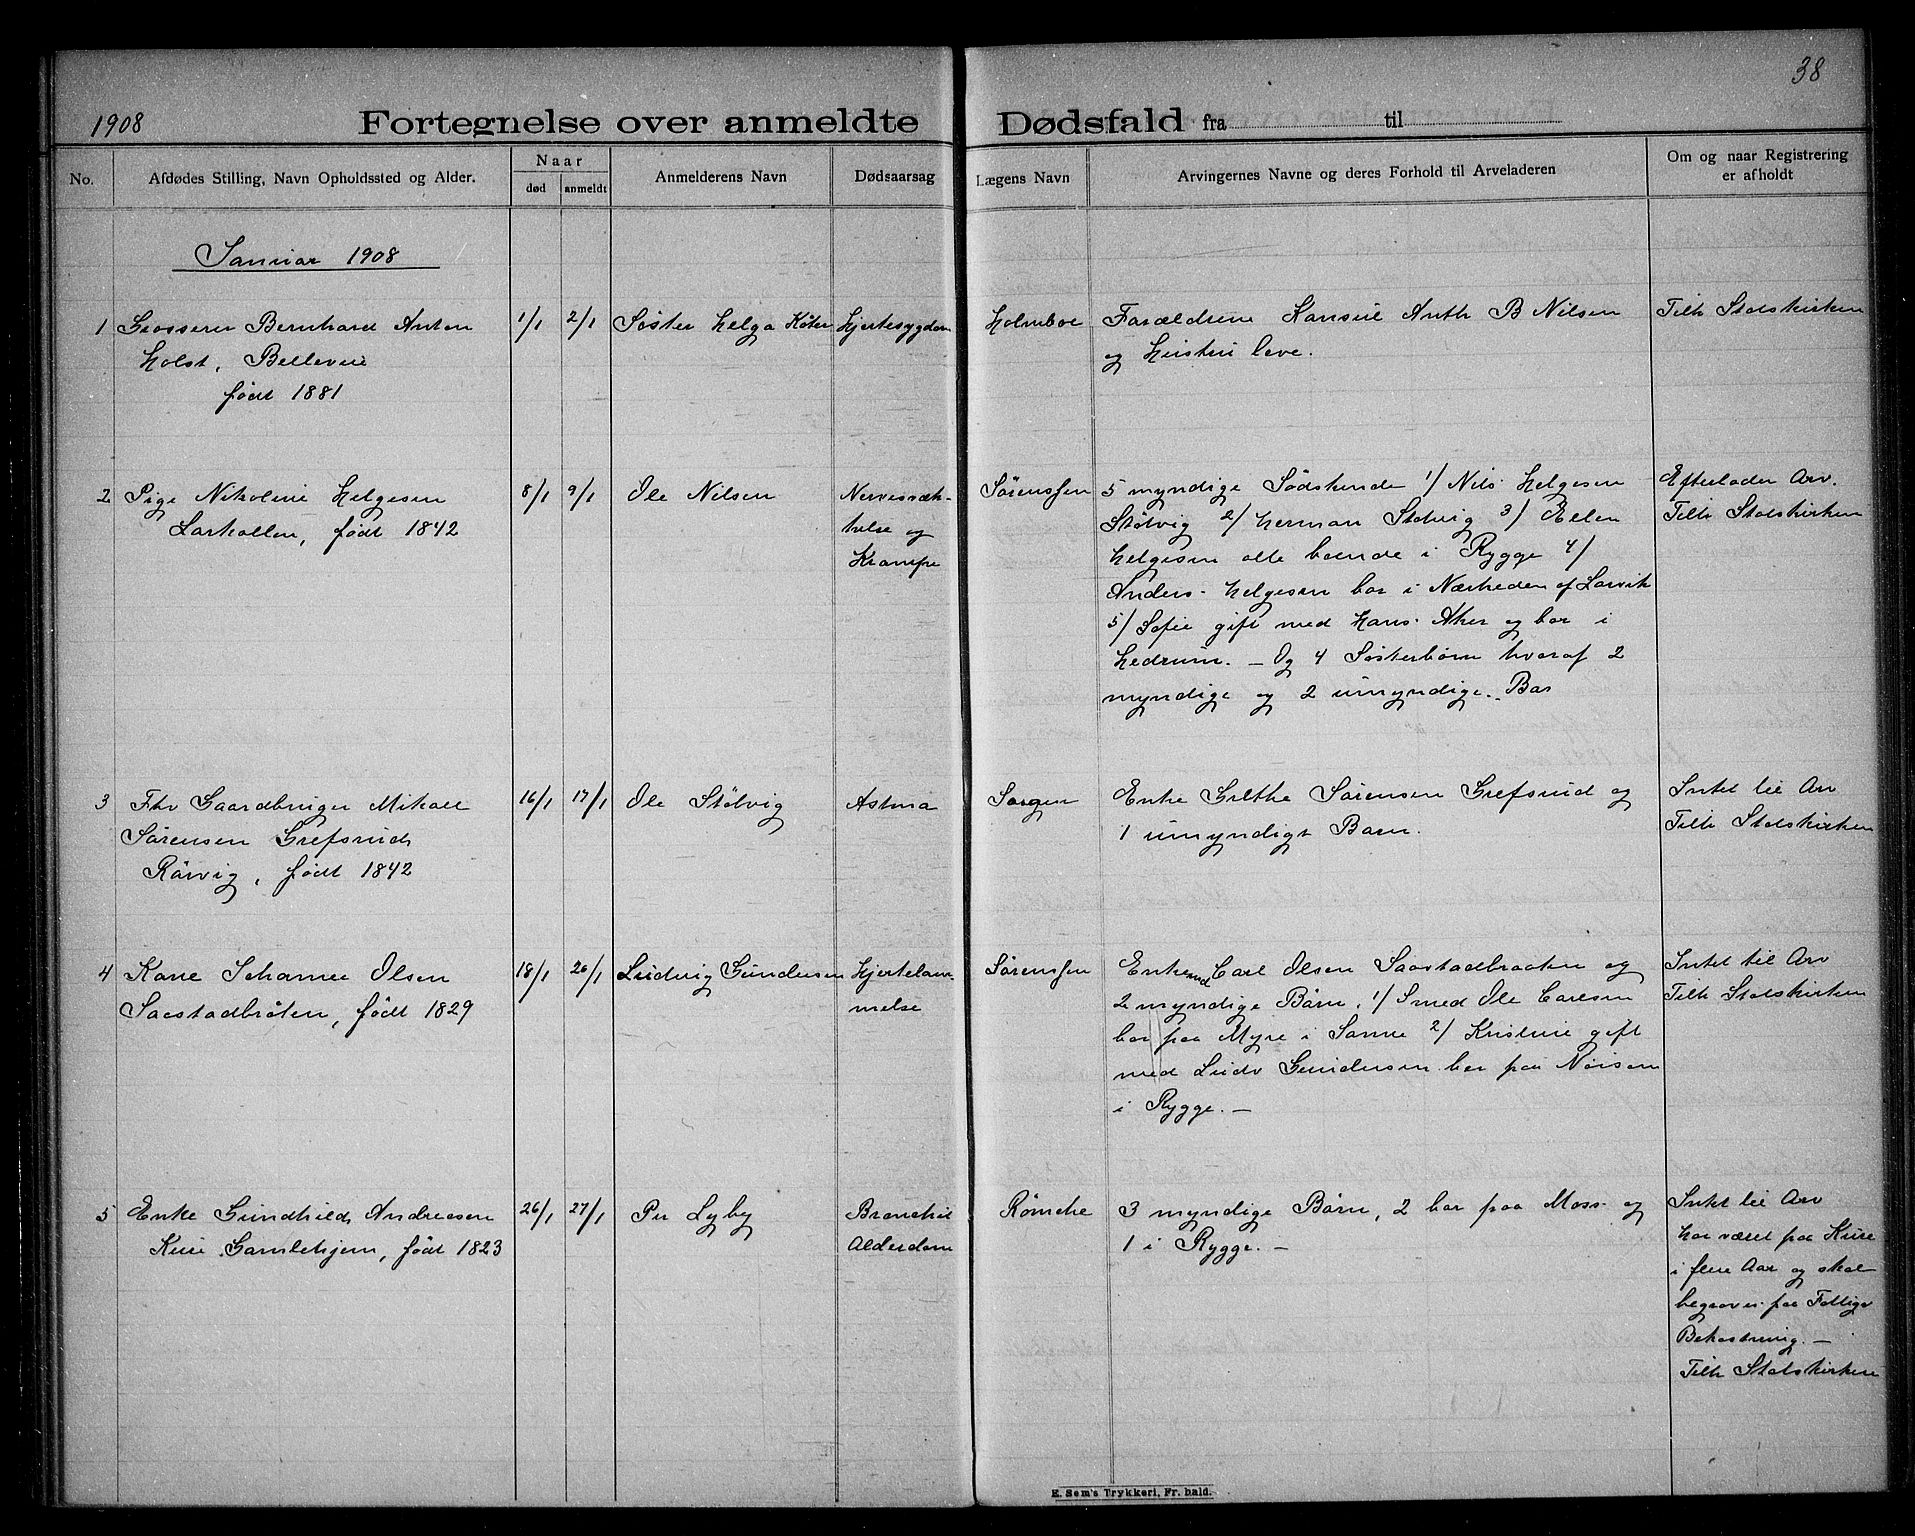 38
1908 Fortegnelse over anmeldte Dødsfald fra til
No.
Afdødes Stilling, Navn Opholdssted og Alder.
Naar
død
anmeldt
Anmelderens Navn
Dødsaarsag
Lægens Navn
Arvingernes Navne og deres Forhold til Arveladeren
Om og naar Registrering
er afholdt
Januar 1908
1 Grosserer Bernhard Anton
Holst, Bellevue
født 1881
1/1
2/1
Søster Helga Käter
Hjertesygdom
Holmboe
Forældrene Konsul Anth B Nilsen
og Hustru leve.
Tilh Statskirken
2 Pige Nikoline Helgesen
Larkollen, født 1842
8/1
9/1
Ole Nilsen
Nervesvæk-
kelse og
Krampe
Sørenssen
5 myndige Sødskende 1/ Nils Helgesen
Støtvig 2/ Herman Støtvig 3/ Ellen
Helgesen alle boende i Rygge 4/
Anders Helgesen bor i Nærheden af Larvik
5/ Sofie gift med Hans Aker og bor i
Hedrum. — Og 4 Søsterbørn hvoraf 2
myndige og 2 umyndige. Bar
Efterlader Arv.
Tilh Statskirken
3 Fhv Gaardbruger Mikael
Sørensen Grefsrud
Rørvig, født 1842
16/1
17/1
Ole Støtvig
Astma
Sorgen
Enke Grethe Sørensen Grefsrud og
1 umyndigt Barn.
Intet til Arv
Tilh Statskirken
4 Kone Johanne Olsen
Saastadbråten, født 1829
18/1
20/1
Ludvig Gundersen
Hjertelam-
melse
Sørenssen
Enkemd Carl Olsen Saastadbraaten og
2 myndige Børn, 1/ Smed Ole Carlsen
bor paa Myre i Sanne 2/ Kristine gift
med Ludv Gundersen bor paa Nøisom
i Rygge. —
Intet til Arv
Tilh Statskirken
5 Enke Gundhild Andreasen
Kure Gamlehjem, født 1823
26/1
27/1
Per Lyby
Bronchit
Alderdom
Rømcke
3 myndige Børn, 2 bor paa Moss og
1 i Rygge. —
Intet til Arv
Har været paa Kure
i flere Aar og skal
begraves paa Fattigv
Bekostning. —
Tilh Statskirken
E. Sem's Trykkeri, Fr. hald.